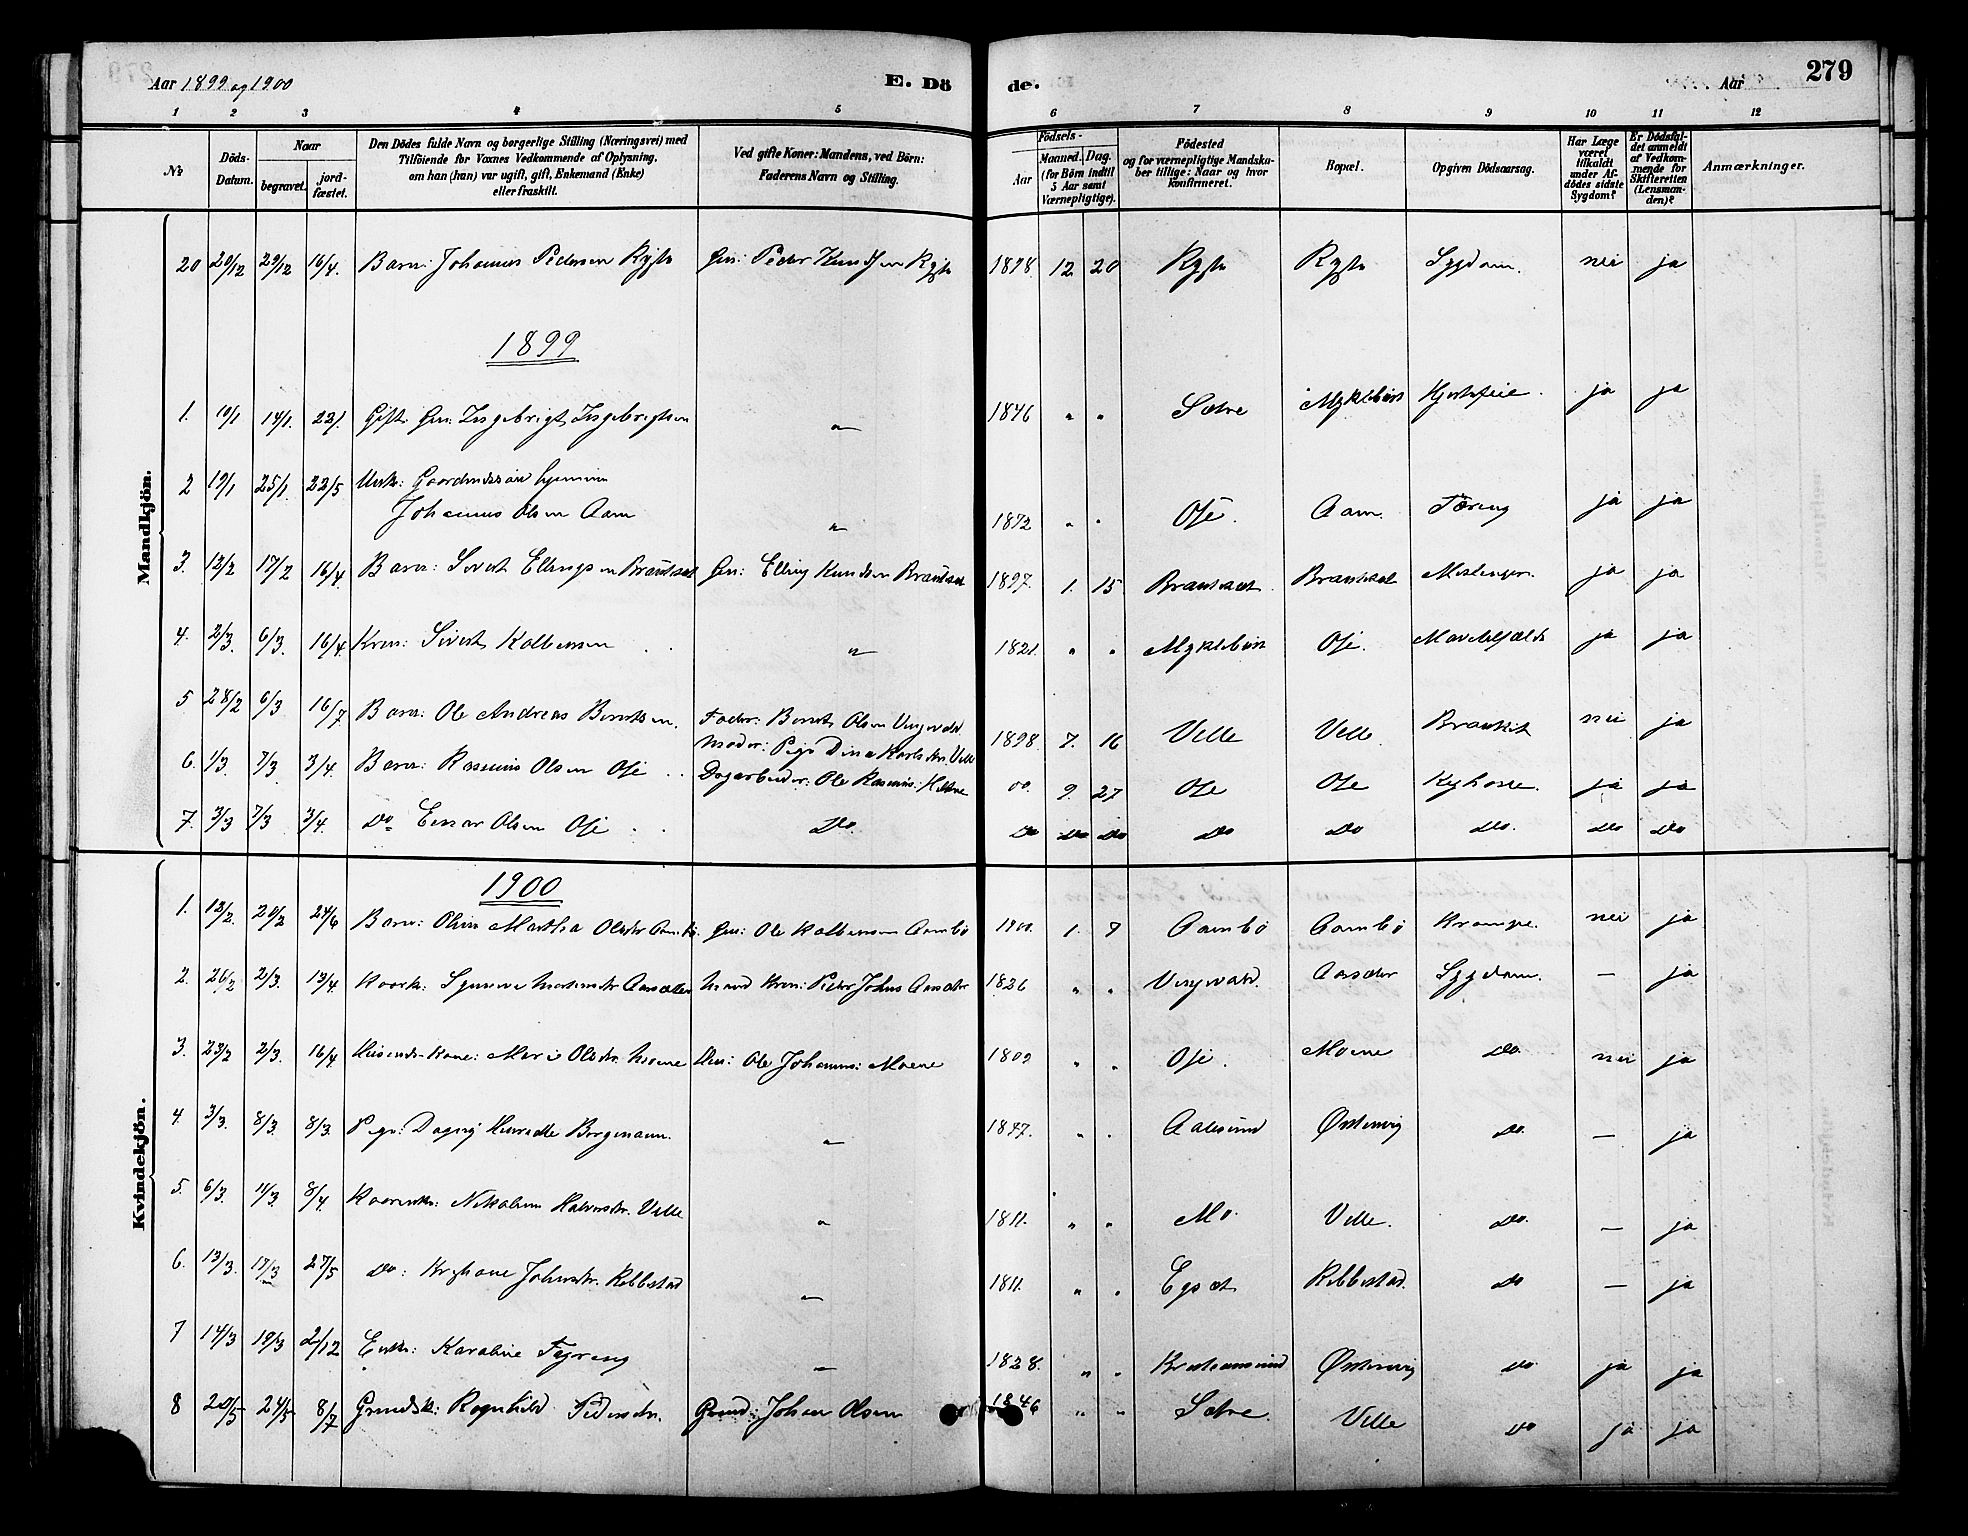 Aar 1899 og 1900
E. Dö de.
Aar
279
1 2 3 4 5 6 7 8 9 10 11 12
№
Döds-Datum.
Naar
begravet.
jord-fæstet.
Den Dödes fulde Navn og borgerlige Stilling (Næringsvei) med
Tilföiende for Voxnes Vedkommende af Oplysning,
om han (hun) var ugift, gift, Enkemand (Enke)
eller fraskilt.
Ved gifte Koner: Mandens, ved Börn:
Faderens Navn og Stilling.
Födsels-
Aar
Maaned. Dag.
(for Börn indtil
5 Aar samt
Værnepligtige).
Födested
og for værnepligtige Mandska-
ber tillige: Naar og hvor
konfirmeret.
Bopæl.
Opgiven Dödsaarsag.
Har Læge
været
tilkaldt
under Af-
dödes sidste
Sygdom?
Er Dödsfal-
det anmeldt
af Vedkom-
mende for
Skifteretten
(Lensman-
den)?
Anmærkninger.
Mandkjön.
20 20/12 29/12 16/4. Barn: Johannes Pedersen Rysto Gm: Peder Knudsen Rysto 1898. 12 20 Rysto Rysto Sygdom. nei ja
1899
1. 10/1 14/1. 22/. Gift Gm: Ingebrigt Ingebrigtsen " 1846 " " Sætre Myklebust Hjertefeil. ja ja
2 19/1 25/1. 22/5 Unk:
Johannes Olsen Aam " 1872 " " Ose. Aam. Tæring ja ja
3. 12/2 17/2 16/4 Barn: Sivert Ellingsen Brautset Gm: Elling Knudsen Brautset 1897. 1. 15 Brautset. Brautset Meslinger. ja ja
4. 2/3. 6/3. 16/4. Kren: Sivert Kolbensen " 1821. " " Myklebust Ose. ja ja
5 28/2 6/3 16/7 Barn: Ole Andreas Berntsen. Fader: Bernt Olsen
Moder: Pige Dina Karlsdtr. Velle 1898. 7. 16 Velle Velle. nei ja
6. 1/3. 7/3. 3/4. Barn: Rasmus Olsen Ose Dagarbeider: Ole Rasmus: 9. 27 Ose Ose Kighoste. ja ja
7. 3/3 7/3 3/4. Do Einar Olsen Ose Do. Do Do Do Do Do Do. Do Do
Kvindekjön.
1900
1. 12/2. 20/2 24/6 Barn: Oline Martha Olsdtr Gm: Ole Kolbensen Aambö 1900. 1. 7 Aambö Aambö Krampe. nei ja
2. 26/2 2/3. 13/4. Kaark: Synneve Martinsdtr Aarsæter Mand Kren: Peder Johns Aarsæter 1826 " " Aarsæter Sygdom. — ja
3. 23/2 2/3. 16/4 Husmds-Kone: Mari Olsdtr. Moene Hm: Ole Johannes: Moene 1809 " " Ose. Moene Do. nei ja
4. 3/3. 8/3. 8/3. Pige: Dagny Henriette Borgemann. " 1897. " " Aalesund Østervig Do. — ja
5. 6/3. 11/3. 8/4. Nikoline Halvorsdtr. Velle " 1811. " " Mo. Velle. Do. — ja
6. 13/3. 17/3 27/5 Do: Johnsdtr. Ribbestad " 1811. " " Egset Ribbestad. Do — ja
7 14/3 19/3 2/12 Enke: Karoline " 1828. " " Kristiansund Østervig Do. ja ja
8 20/5 24/5 8/7 Grmdsk: Ragnhild Pedersdtr. Grmd: Johan Olsen 1846 " " Sætre. Velle Do ja ja